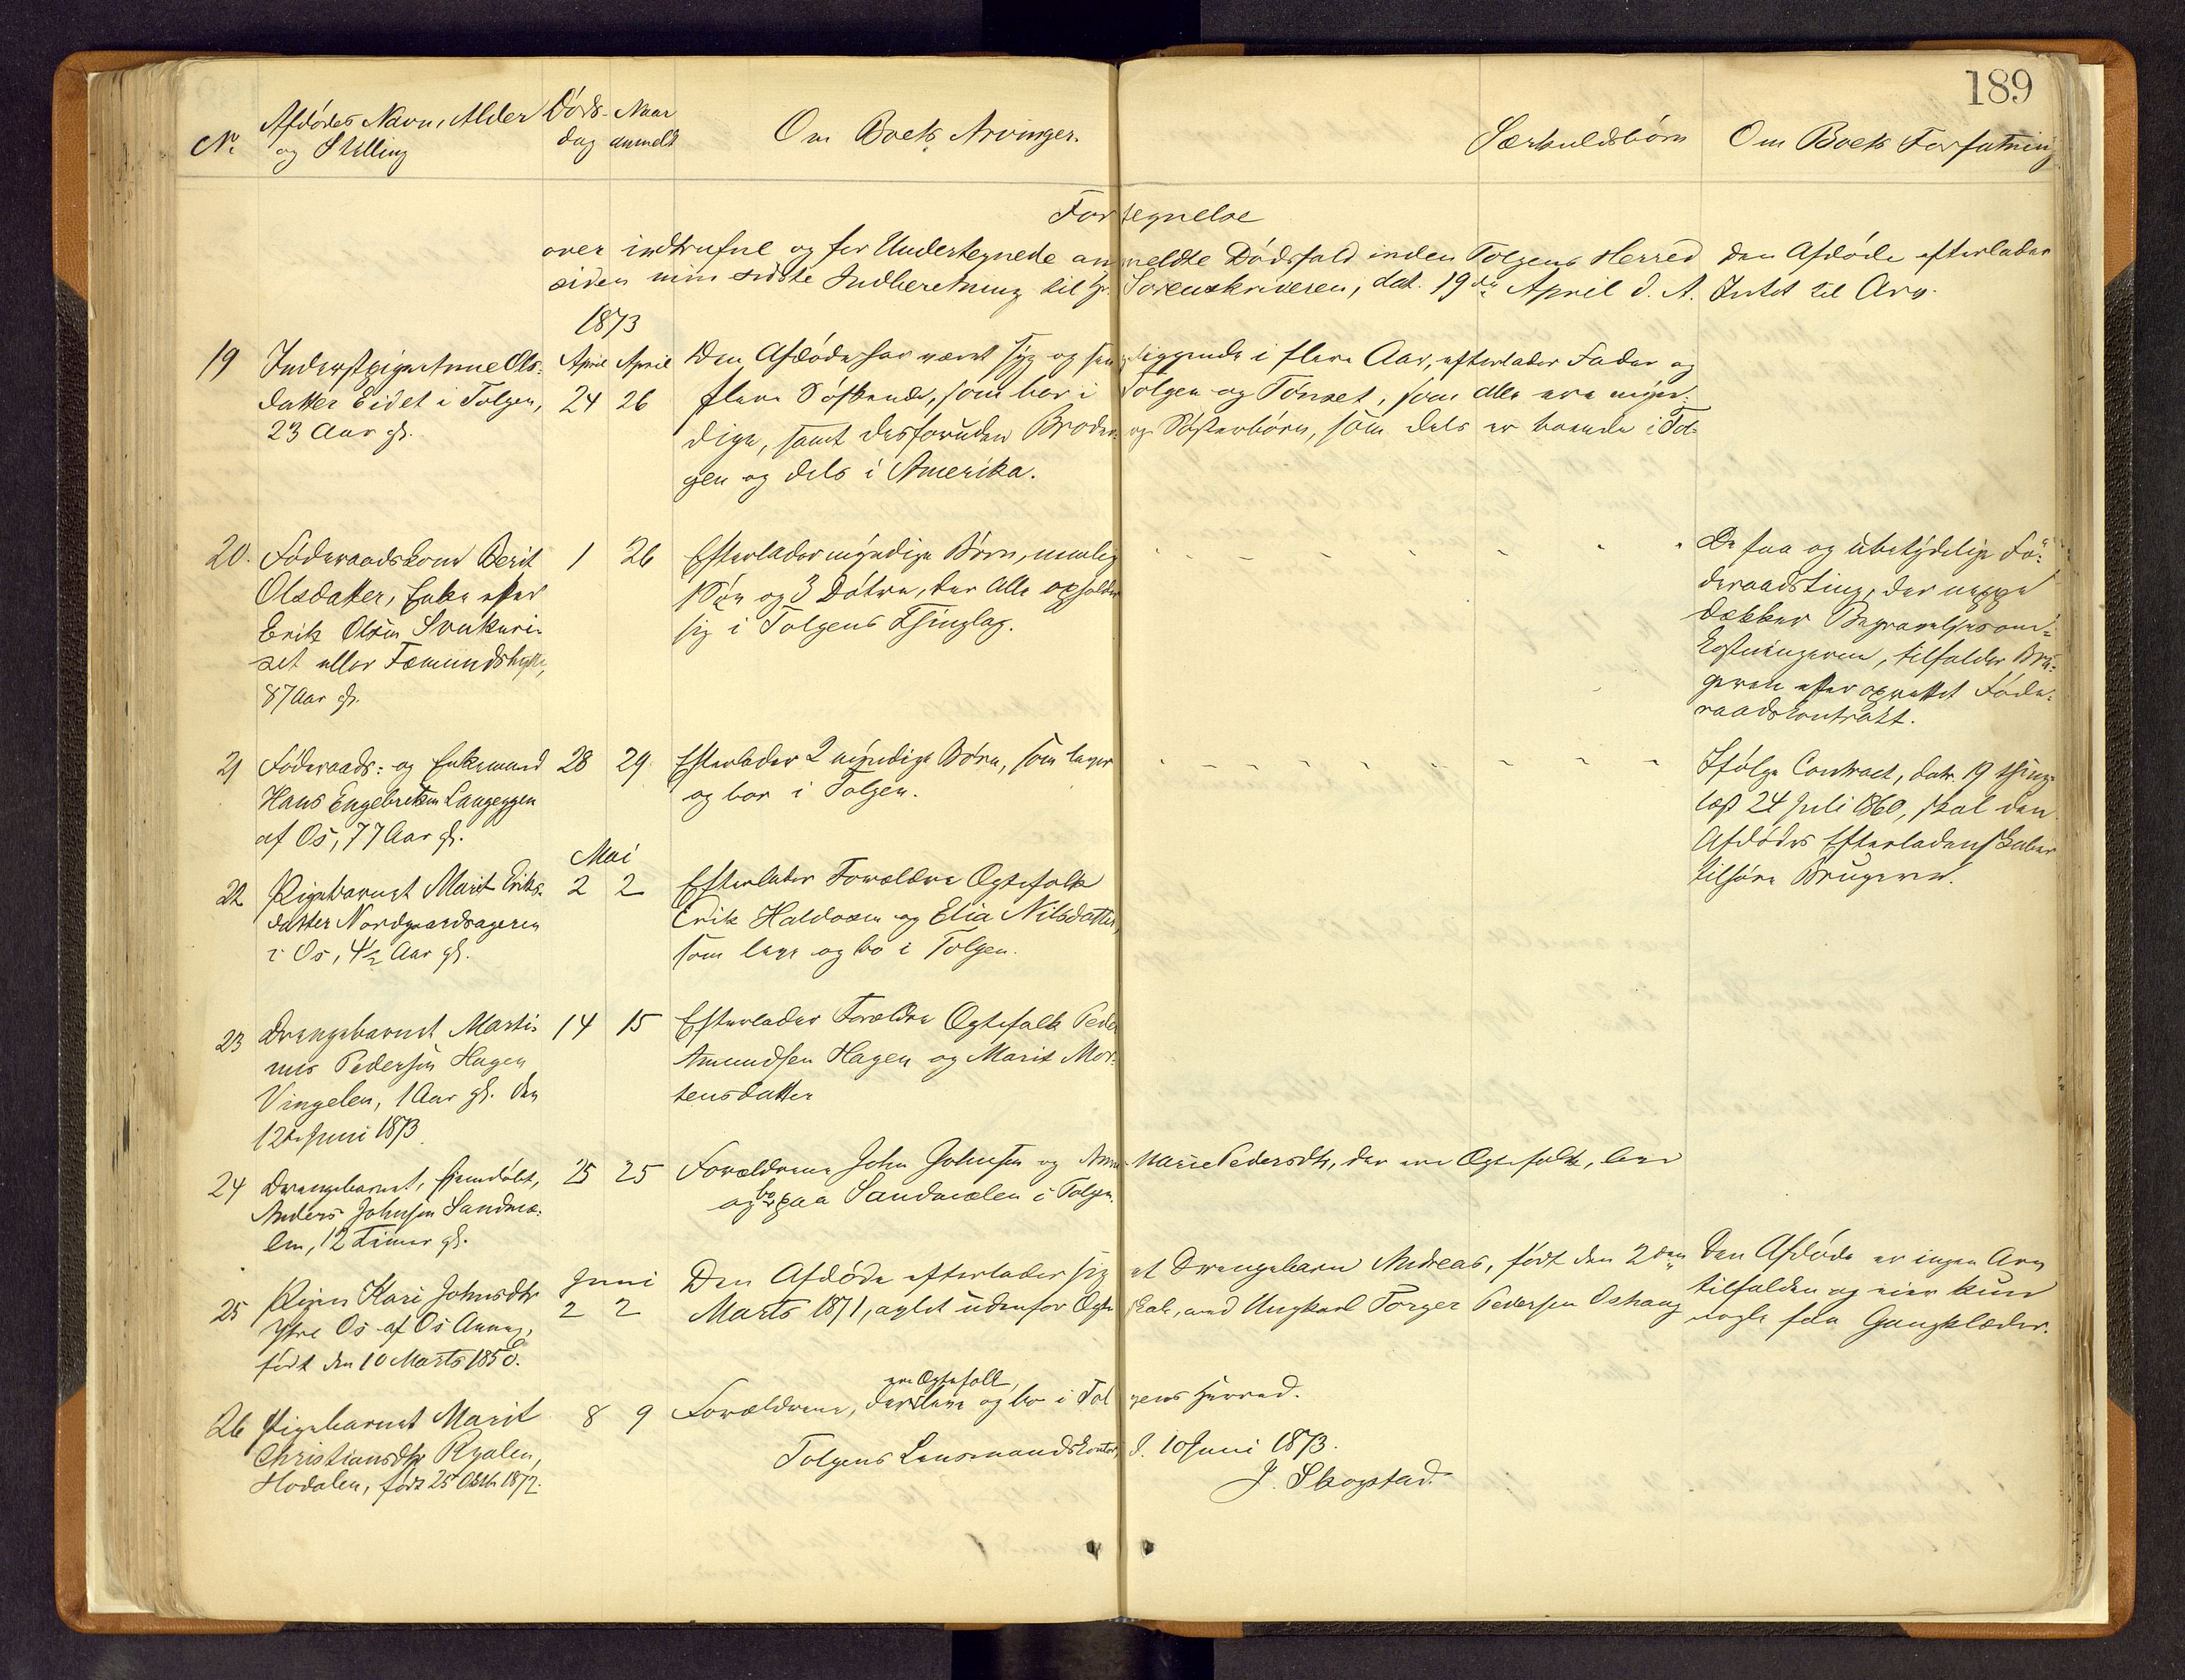 189
No
Afdødes Navn, Alder
og Stilling
Døds-
dag
Naar
anmeldt
Om Boets Arvinger.
Særkuldsbørn
Om Boets Forfatning
Fortegnelse
over indtrufne og for Undertegnede anmeldte Dødsfald inden Tolgens Herred
siden min sidste Indberetning til Hr. Sorenskriveren, dat. 19de April d. A.
Den Afdøde efterlader
Intet til Arv.
1873
19
Inderstpige Anne Ols-
datter Eidet i Tolgen,
23 Aar gl.
April April
24 26
Den Afdøde har været syg og sengeliggende i flere Aar, efterlader Fader og
flere Søskende, som bor i Tolgen og Tønset, som alle ere myn-
dige, samt desforuden Broder- og Søsterbørn, som dels er boende i Tol-
gen og dels i Amerika.
20.
Føderaadskone Berit
Olsdatter, Enke efter
Erik Olsen Svukuri-
set eller Fæmundshytte,
87 Aar gl.
1 26
Efterlader myndige Børn, nemlig
1 Søn og 3 Døtre, der alle opholder
sig i Tolgens Thinglag.
De faa og ubetydelige Fø-
deraadsting, der neppe
dækker Begravelsesom-
kostningerne, tilfalder Bru-
geren efter oprettet Føde-
raadskontrakt.
21
Føderaads- og Enkemand
Hans Engebretsen Langeggen
af Os, 77 Aar gl.
28 29
Efterlader 2 myndige Børn, som lever
og bor i Tolgen.
Ifølge Contract, datr. 19 thing-
læst 24 Juli 1860, skal den
Afdødes Efterladenskaber
tilhøre Brugeren.
Mai
22
Pigebarnet Marit Eriks-
datter Nordgaardsageren
i Os, 4½ Aar gl.
2 2
Efterlader Forældre Ægtefolk
Erik Haldosen og Elia Nilsdatter,
som leve og bo i Tolgen.
23
Drengebarnet Marti-
nus Pedersen Hagen
Vingelen, 1 Aar gl. den
12te Juni 1873.
14 15
Efterlader Forældre Ægtefolk Peder
Amundsen Hagen og Marit Mor-
tensdatter
24
Drengebarnet, hjemdøbt,
Anders Johnsen Sandmæ-
len, 12 Timer gl.
25 25
Forældrene John Johnsen og Anne Marie Pedersdtr, der ere Ægtefolk, leve
og bo paa Sandmælen i Tolgen.
25
Pigen Kari Johnsdtr
Ytre Os af Os Annex,
født den 10 Marts 1850.
Juni
2 2
Den Afdøde efterlader sig et Drengebarn Andreas, født den 2den
Marts 1871, avlet udenfor Ægteskab, med Ungkarl Torger Pedersen Oshaug
Den Afdøde er ingen Arv
tilfalden og eier kun
nogle faa Gangklæder.
26
Pigebarnet Marit
Christiansdtr Ryalen,
Hodalen, født 25 Oktbr 1872.
8 9
ere Ægtefolk,
Forældrene, der leve og bo i Tolgens Herred.
Tolgens Lensmandskontor, d. 10 Juni 1873.
J. Skogstad.